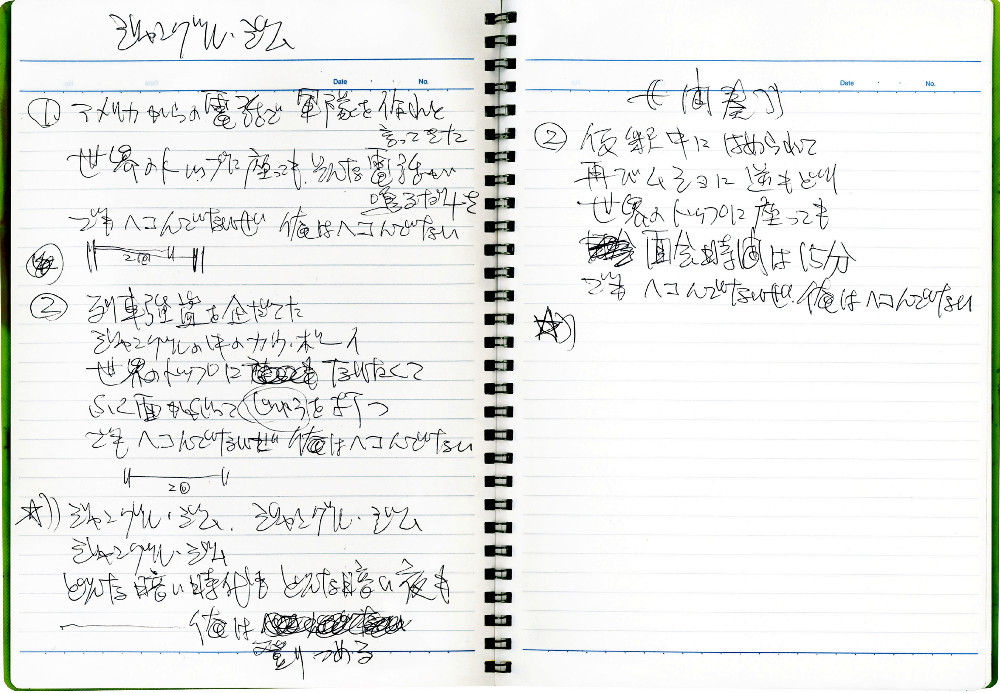 ジャングル・ジム
Date No.
① アメリカからの電話で 軍隊を作れと
言ってきた
世界のトップに座っても そんな電話が
鳴るだけさ
でも ヘコんでないぜ 俺はヘコんでない
2回
② 列車強盗を企だてた
ジャングルの中のカウ・ボーイ
世界のトップに
でも ヘコんでないぜ 俺はヘコんでない
2回
☆)) ジャングル・ジム、ジャングル・ジム
ジャングル・ジム
どんな暗い時代も どんな暗い夜も
俺は
登りつめる
Date No.
《間奏》
② 仮釈中に はめられて
再びムショに逆もどり
世界のトップに座っても
面会時間は15分
でも ヘコんでないぜ 俺はヘコんでない
☆))